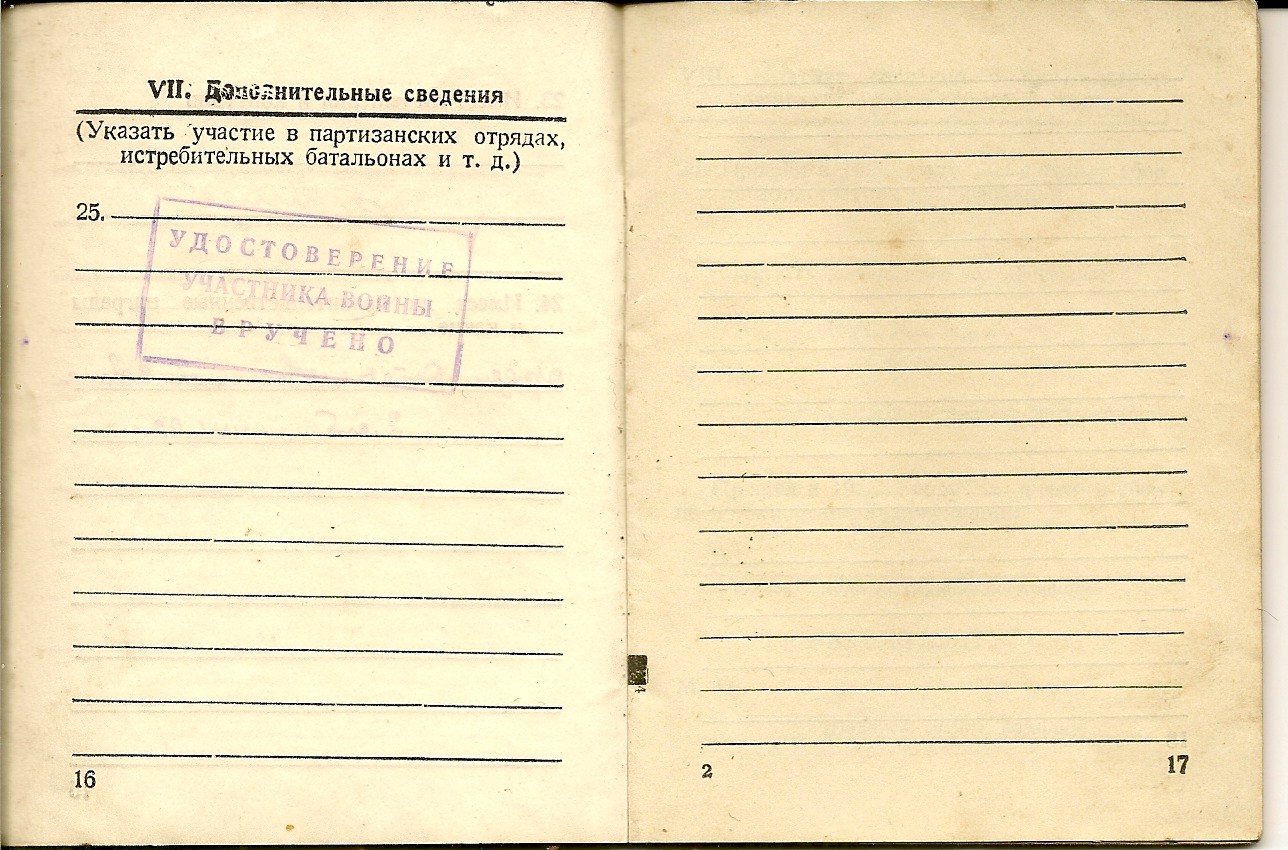 VII. Дополнительные сведения
(Указать участие в партизанских отрядах,
истребительных батальонах и т. д.)
25.
УДОСТОВЕРЕНИЕ
УЧАСТНИКА ВОЙНЫ
ВРУЧЕНО
16
2
17